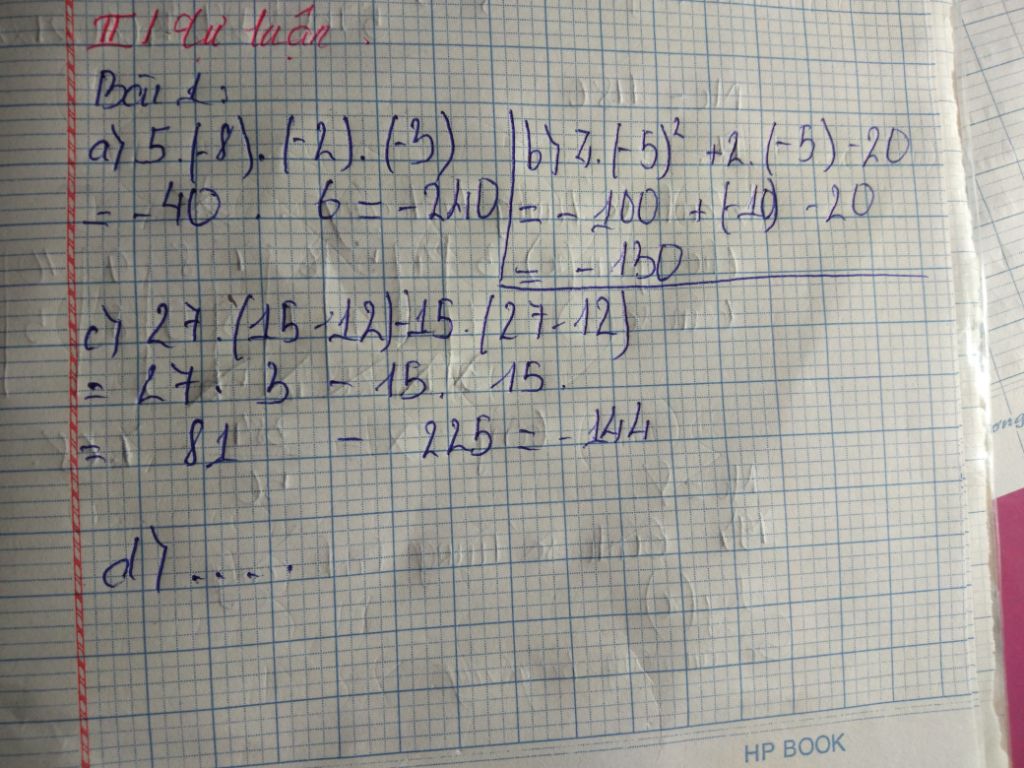 II / Tự luận
Bài 1:
a) 5.(-8).(-2).(-3)
= -40 . 6 = -240
b) 3.(-5)² +2.(-5) -20
= - 100 + (-10) -20
= - 130
c) 27.(15-12)-15.(27-12)
= 27. 3 - 15. 15.
= 81 - 225 = -144
d) .....
HP BOOK